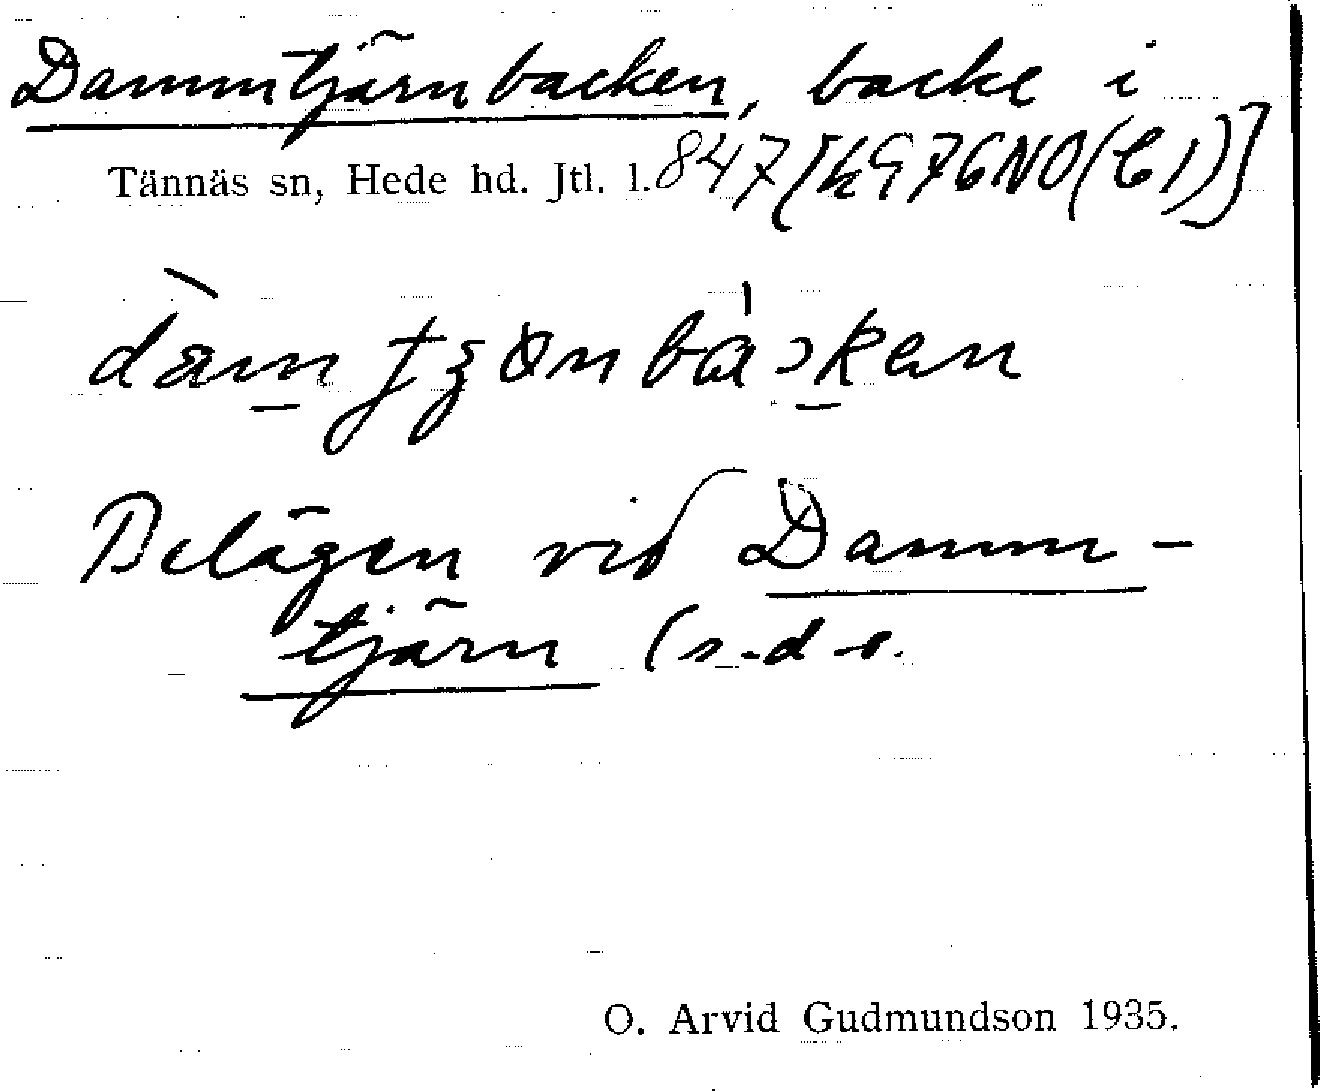 Dammtjärnbacken, backe i
Tännäs sn, Hede hd. Jtl. l. 847 [k976NO(C1)]
Belägen vid Damm-
tjärn (s.d.o.
O. Arvid Gudmundson 1935.